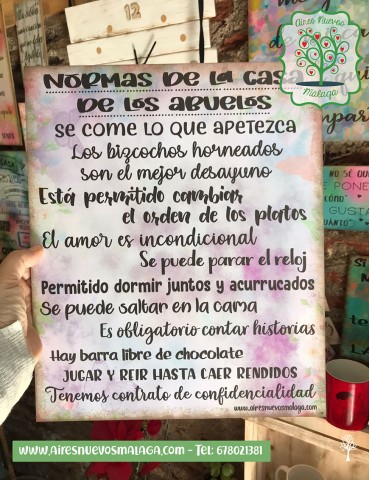 12
Aires Nuevos
Málaga
NORMAS DE LA CASA
DE LOS ABUELOS
SE COME LO QUE APETEZCA
Los bizcochos horneados
son el mejor desayuno
Está permitido cambiar
el orden de los platos
El amor es incondicional
Se puede parar el reloj
Permitido dormir juntos y acurrucados
Se puede saltar en la cama
Es obligatorio contar historias
Hay barra libre de chocolate
JUGAR Y REIR HASTA CAER RENDIDOS
Tenemos contrato de confidencialidad
www.airesnuevosmalaga.com
www.AiresNuevosMalaga.com - Tel: 678021381